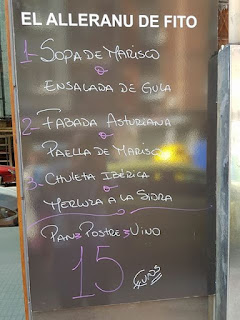 EL ALLERANU DE FITO
1- SOPA DE MARISCO
o
ENSALADA DE GULA
2- FABADA ASTURIANA
o
PAELLA DE MARISCO
3- CHULETA IBÉRICA
o
MERLUZA A LA SIDRA
PAN Y POSTRE Y VINO
15 EUROS